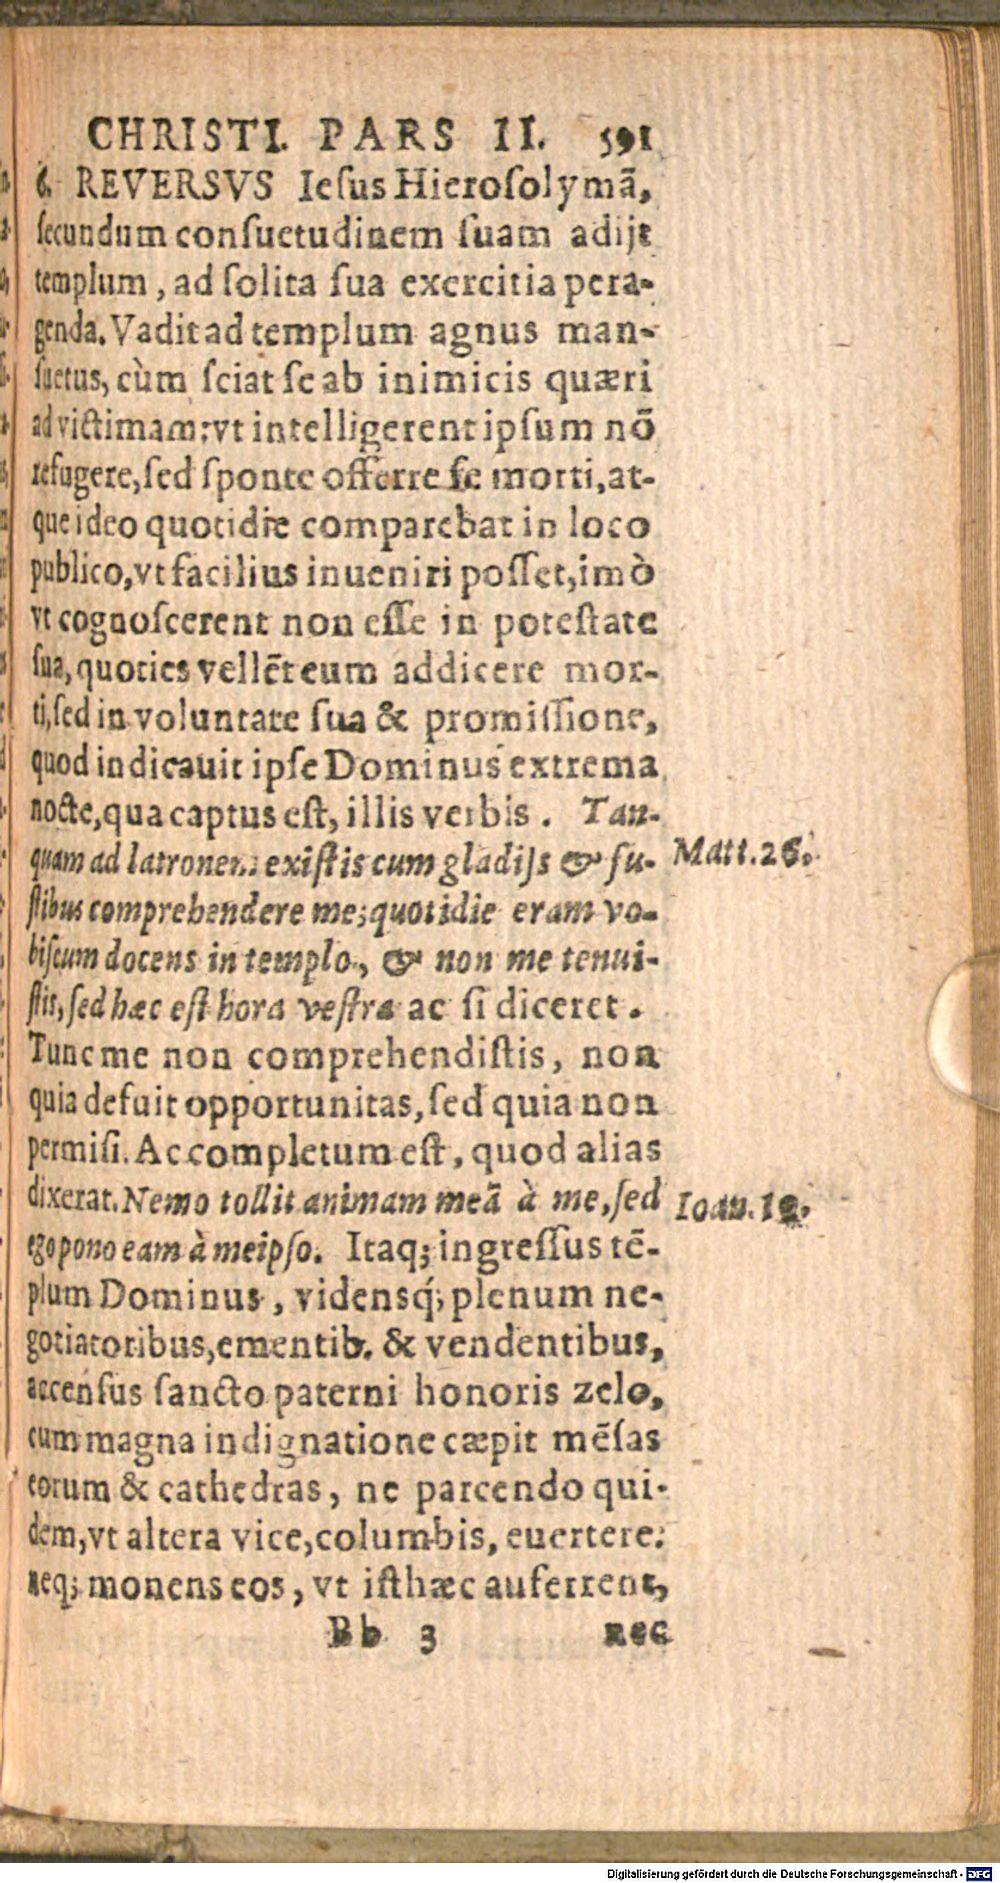 CHRISTI. PARS II. 591
6. REVERSVS Ieſus Hieroſolymã,
ſecundum conſuetudinem ſuam adijt
templum, ad ſolita ſua exercitia pera-
genda. Vadit ad templum agnus man-
ſuetus, cùm ſciat ſe ab inimicis quæri
ad victimam: vt intelligerent ipſum nõ
refugere, ſed ſponte offerre ſe morti, at-
que ideo quotidie comparebat in loco
publico, vt facilius inueniri poſſet, imò
vt cognoſcerent non eſſe in poteſtate
ſua, quoties vellẽt eum addicere mor-
ti, ſed in voluntate ſua & promiſſione,
quod indicauit ipſe Dominus extrema
nocte, qua captus eſt, illis verbis. Tan-
quam ad latronem exiſtis cum gladijs & fu- Matt. 26.
ſtibus comprehendere me; quotidie eram vo-
biſcum docens in templo, & non me tenui-
ſtis, ſed hæc eſt hora veſtra ac ſi diceret.
Tunc me non comprehendiſtis, non
quia defuit opportunitas, ſed quia non
permiſi. Ac completum eſt, quod alias
dixerat. Nemo tollit animam meã à me, ſed Ioan. 10.
ego pono eam à meipſo. Itaq; ingreſſus tẽ-
plum Dominus, vidensq́; plenum ne-
gotiatoribus, ementib. & vendentibus,
accenſus ſancto paterni honoris zelo,
cum magna indignatione cæpit mẽſas
eorum & cathedras, ne parcendo qui-
dem, vt altera vice, columbis, euertere:
neq; monens eos, vt iſthæc auferrent,
Bb 3 nec
Digitalisierung gefördert durch die Deutsche Forschungsgemeinschaft - DFG